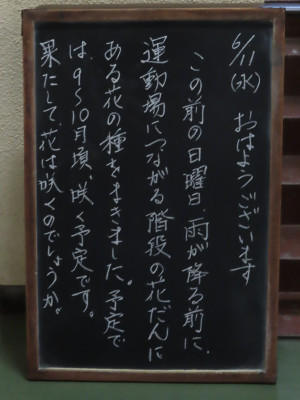 6/11(水) おはようございます
この前の日曜日、雨が降る前に、
運動場につながる階段の花だんに
ある花の種をまきました。予定で
は、9〜10月頃、咲く予定です。
果たして、花は咲くのでしょうか。